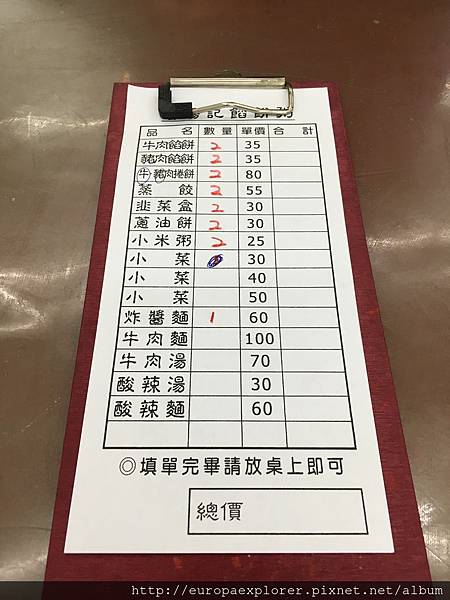 記餡餅粥
品名 數量 單價 合計
牛肉餡餅 2 35
豬肉餡餅 2 35
牛、豬肉捲餅 2 80
蒸餃 2 55
韭菜盒 2 30
蔥油餅 2 30
小米粥 2 25
小菜 30
小菜 40
小菜 50
炸醬麵 1 60
牛肉麵 100
牛肉湯 70
酸辣湯 30
酸辣麵 60
◎填單完畢請放桌上即可
總價
http://europaexplorer.pixnet.net/album